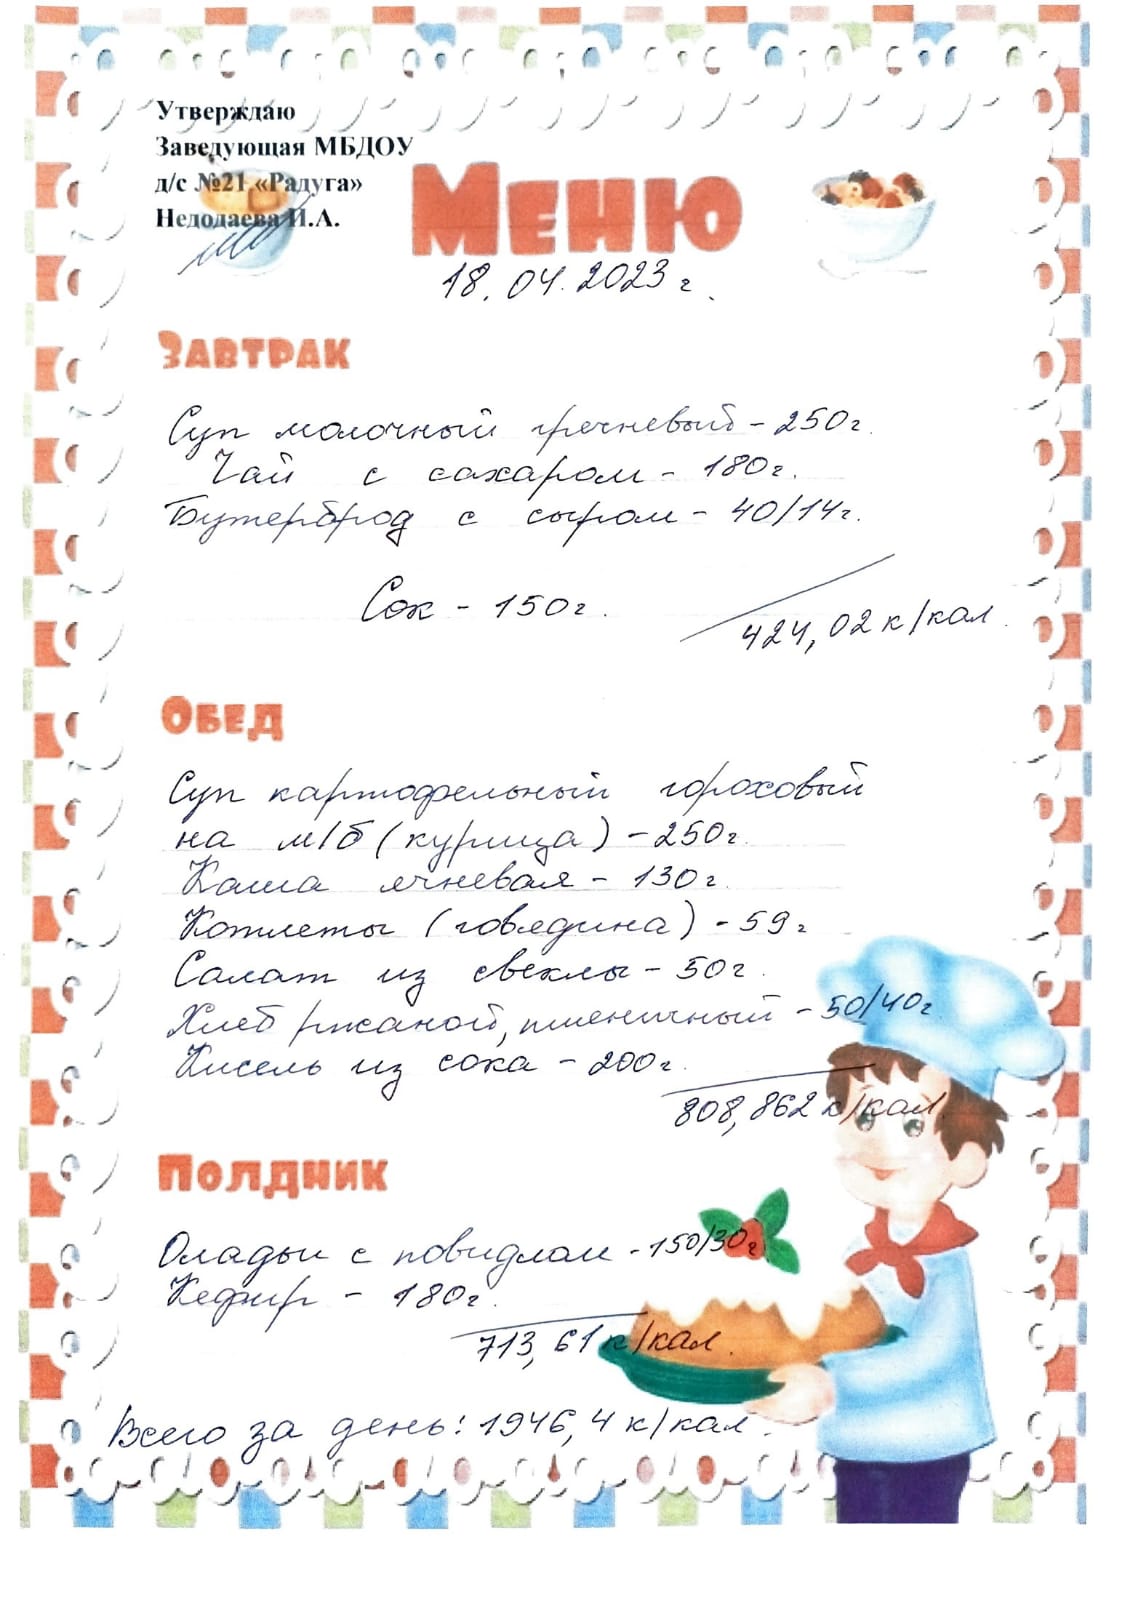 Утверждаю
Заведующая МБДОУ
д/с №21 «Радуга»
Недодаева И.А.
Меню
18.04.2023 г.
Завтрак
Суп молочный гречневый - 250г.
Чай с сахаром - 180г.
Бутерброд с сыром - 40/14г.
Сок - 150г.
424,02 к/кал.
Обед
Суп картофельный гороховый
на м/б (курица) - 250г.
Каша ячневая - 130г.
Котлеты (говядина) - 59г
Салат из свеклы - 50г.
Хлеб ржаной, пшеничный - 50/40г
Кисель из сока - 200г.
808,862 к/кал.
Полдник
Оладьи с повидлом - 150/30г
Кефир - 180г.
713,61 к/кал.
Всего за день: 1946,4 к/кал.